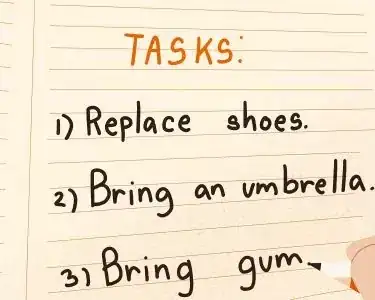 TASKS:
1) Replace shoes.
2) Bring an umbrella.
3) Bring gum